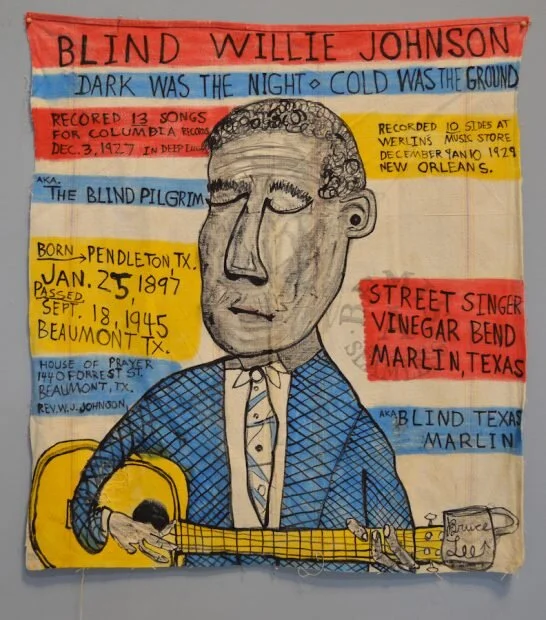 BLIND WILLIE JOHNSON
DARK WAS THE NIGHT ◇ COLD WAS THE GROUND
RECORED 13 SONGS
FOR COLUMBIA RECORDS
DEC. 3, 1927 IN DEEP
RECORDED 10 SIDES AT
WERLINS MUSIC STORE
DECEMBER 9 AN 10 1929
NEW ORLEANS.
AKA.
THE BLIND PILGRIM
BORN → PENDLETON, TX.
JAN. 25, 1897
PASSED
SEPT. 18, 1945
BEAUMONT TX.
STREET SINGER
VINEGAR BEND
MARLIN, TEXAS
HOUSE OF PRAYER
1440 FORREST ST.
BEAUMONT, TX.
REV. W.J. JOHNSON,
AKA BLIND TEXAS
MARLIN
Bruce
Lee